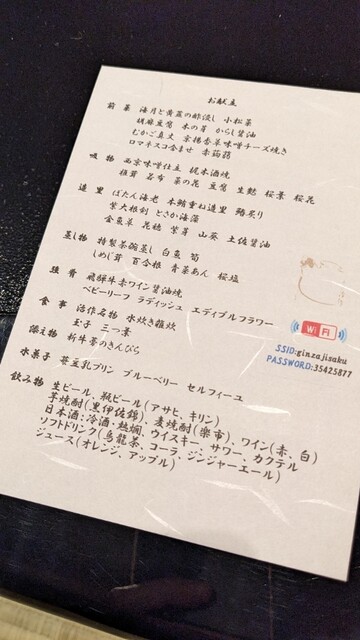 お献立
前菜 海月と黄韮の酢浸し 小松菜
胡麻豆腐 木の芽 からし醤油
むかご真丈 京揚香草味噌チーズ焼き
ロマネスコ含ませ 赤蒟蒻
吸物 西京味噌仕立 桃本酒焼
椎茸 若布 菜の花 豆腐 生麩 桜景 桜花
造里 ぼたん海老 本鮪重ね造里 鰆炙り
紫大根剣 とさか海藻
金魚草 花穂 紫芽 山葵 土佐醤油
蒸し物 特製茶碗蒸し 白魚 筍
しめじ茸 百合根 青菜あん 桜塩
強肴 飛騨牛赤ワイン醤油焼
ベビーリーフ ラディッシュ エディブルフラワー
食事 活作名物 水炊き雑炊
玉子 三つ葉
添え物 新牛蒡のきんぴら
水菓子 笹豆乳プリン ブルーベリー セルフィーユ
飲み物 生ビール、瓶ビール(アサヒ、キリン)
芋焼酎(黒伊佐錦)、麦焼酎(楽市)、ワイン(赤、白)
日本酒:冷酒・熱燗、ウイスキー、サワー、カクテル
ソフトドリンク(烏龍茶、コーラ、ジンジャーエール)
ジュース(オレンジ、アップル)
WiFi
SSID:ginzajisaku
PASSWORD:35425877